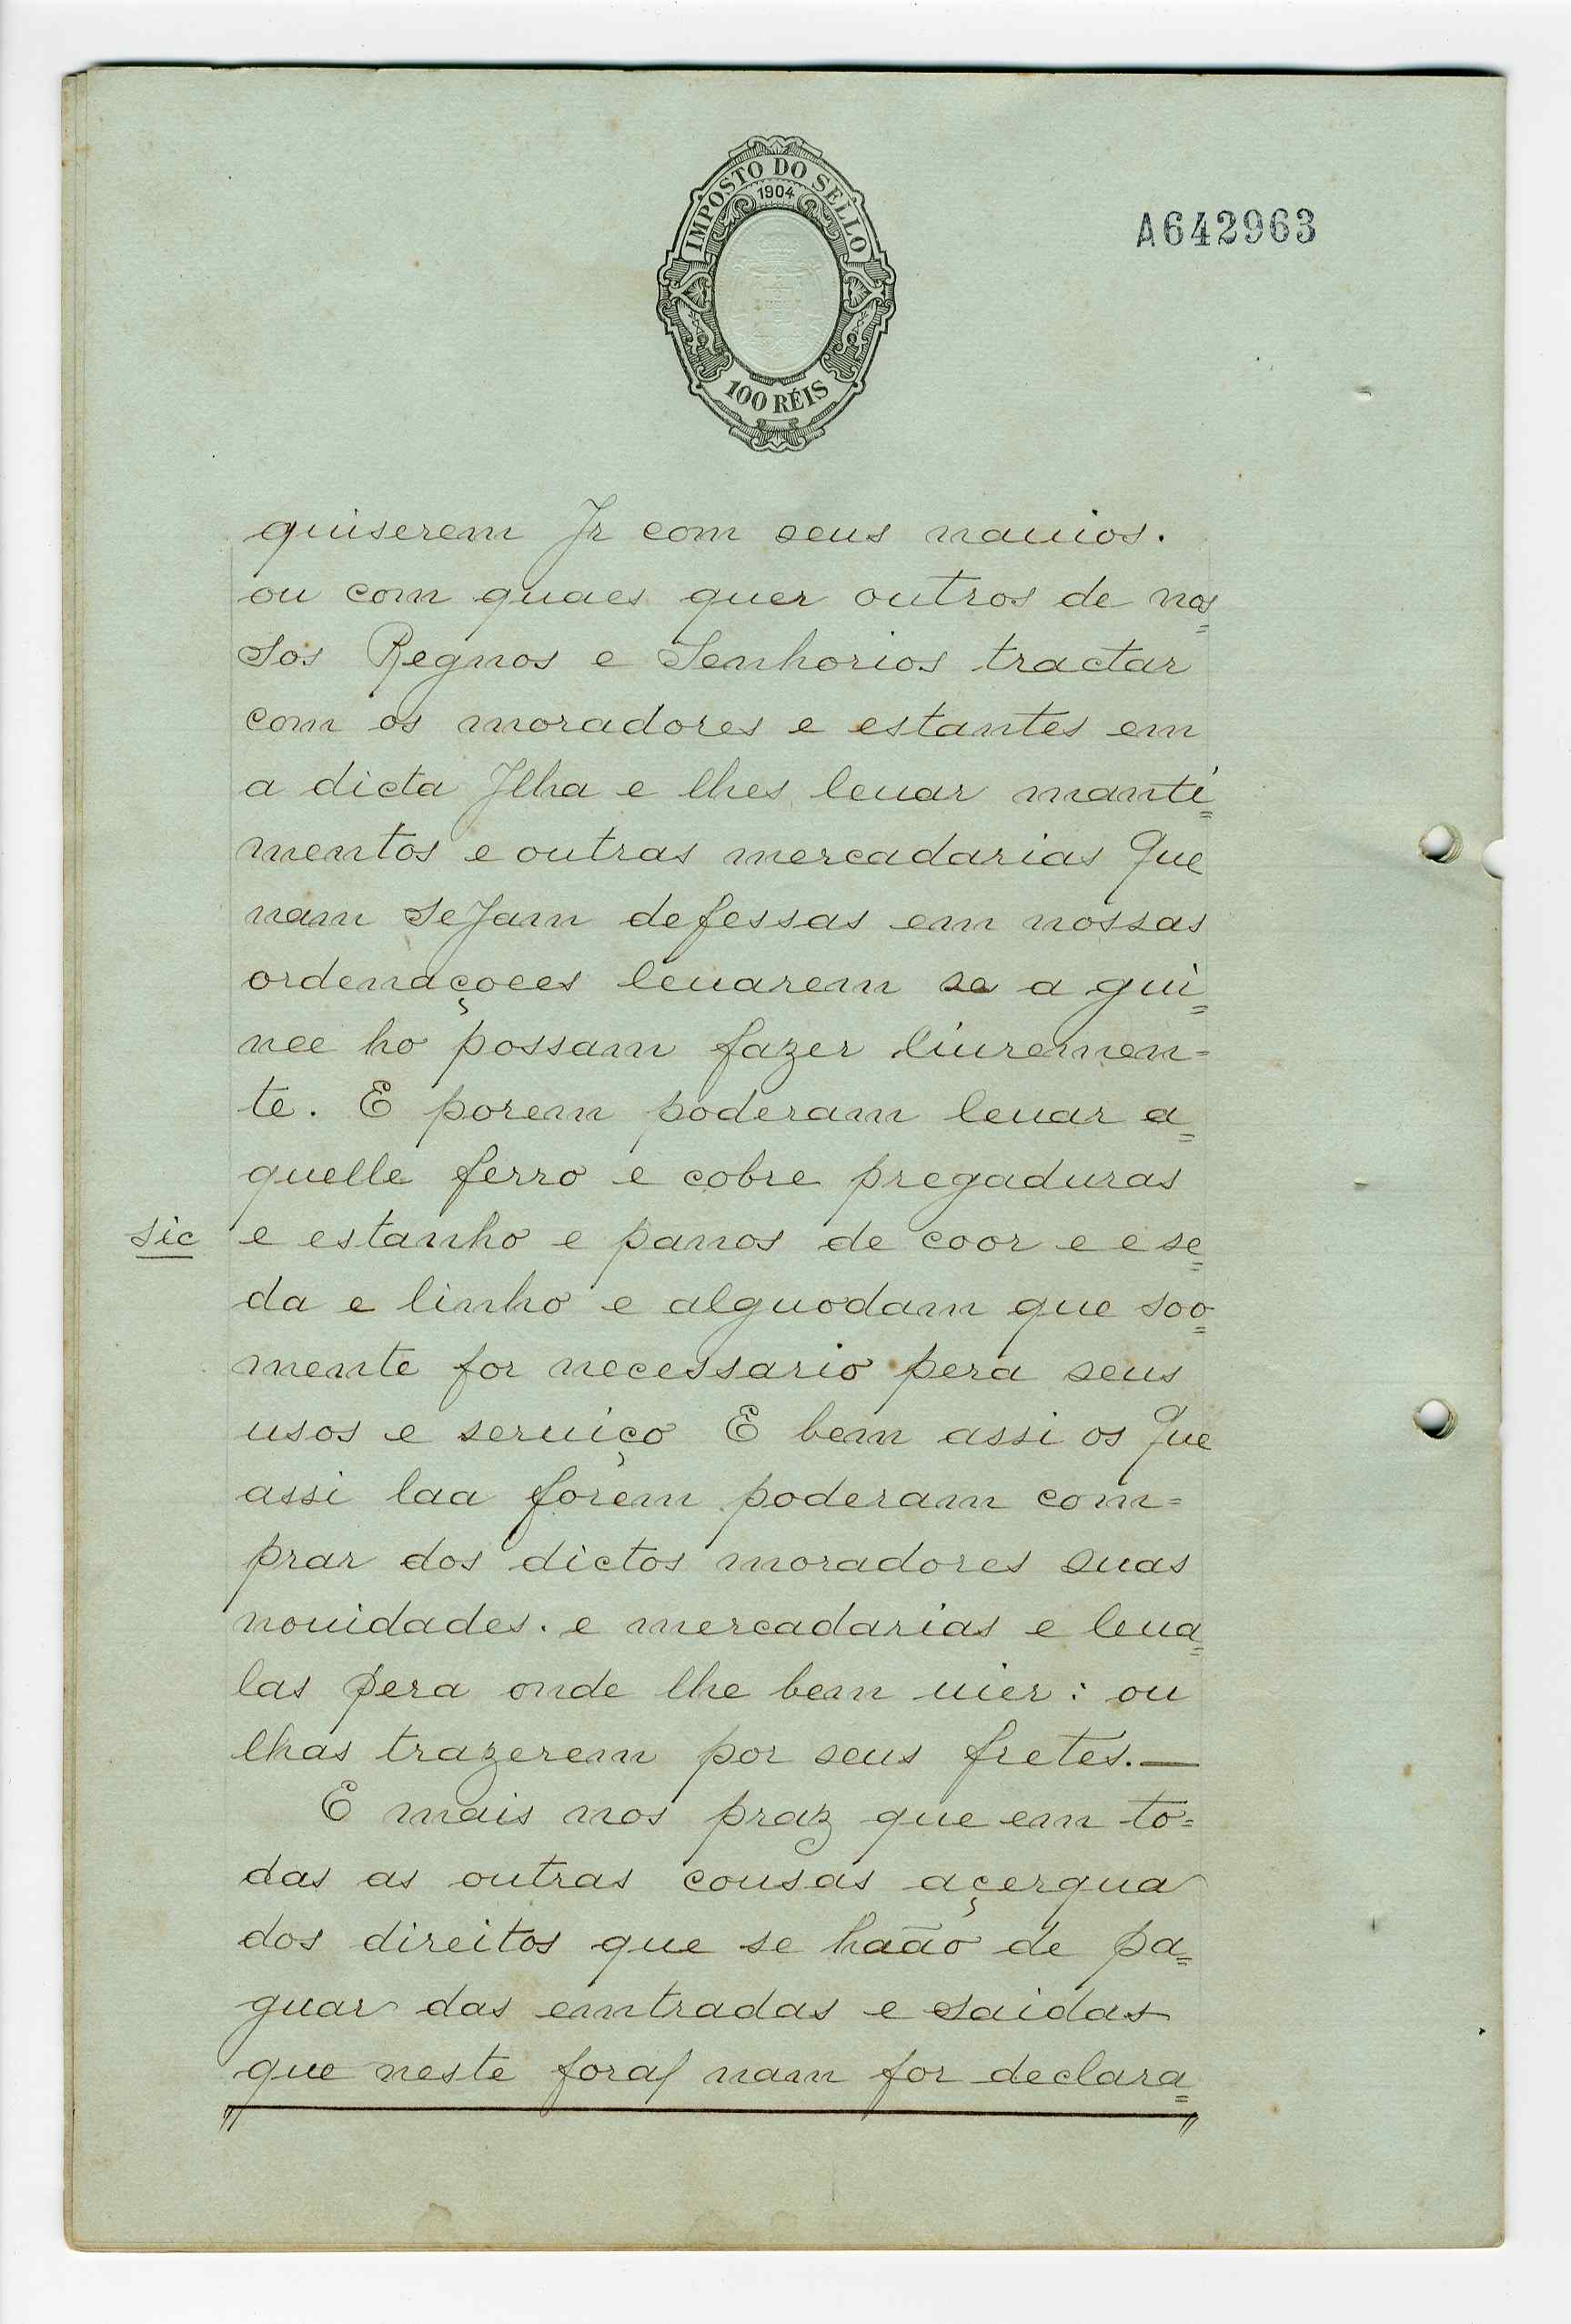 IMPOSTO DO SELLO
1904
100 RÉIS
A642963
quiserem Jr com seus nauios.
ou com quaes quer outros de nos=
sos Regnos e Senhorios tractar
com os moradores e estantes em
a dicta Jlha e lhes leuar manti=
mentos e outras mercadarias que
nam seJam defessas em nossas
ordenaçoees leuarem se a gui=
nee ho possam fazer liuremen=
te. E porem poderam leuar a=
quelle ferro e cobre pregaduras
sic e estanho e panos de coor e e se=
da e linho e alguodam que soo=
mente for necessario pera seus
usos e seruiço E bem assi os que
assi laa forem poderam com=
prar dos dictos moradores suas
nouidades. e mercadarias e leua=
las pera onde lhe bem uier: ou
lhas trazerem por seus fretes.—
E mais nos praz que em to=
das as outras cousas açerqua
dos direitos que se haão de pa=
guar das emtradas e saidas
que neste foral nam for declara=